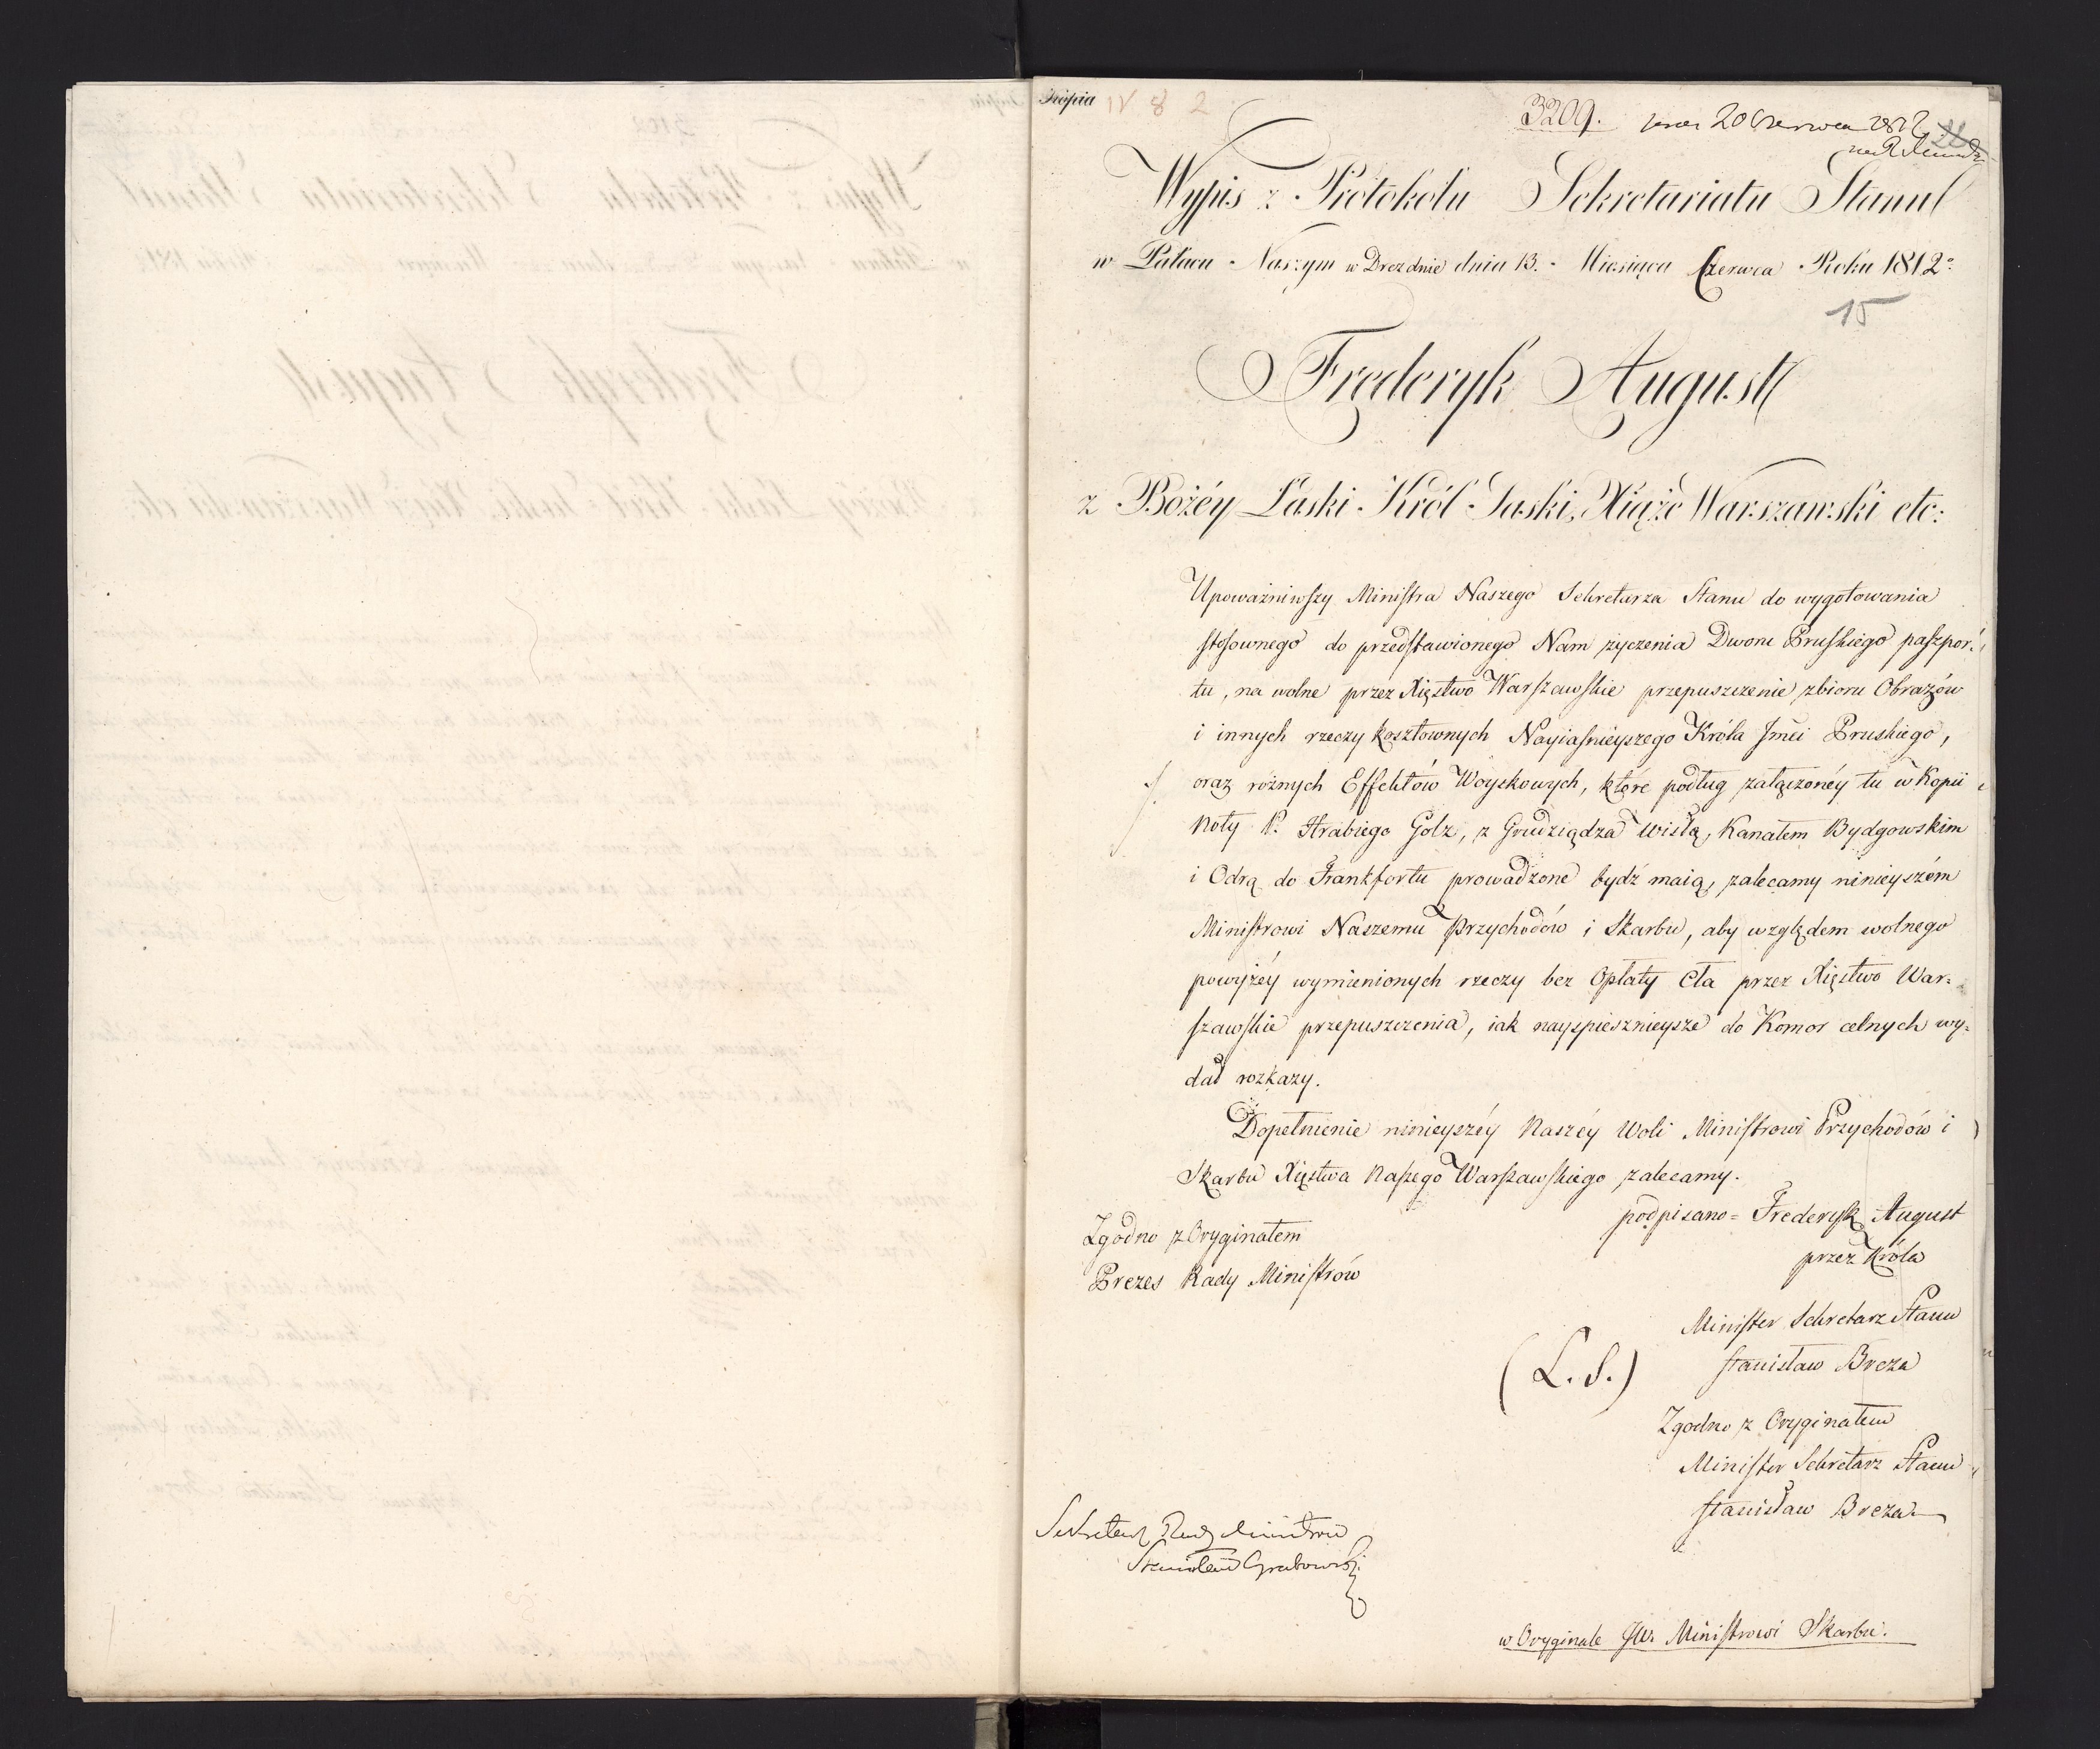 Kopia IV 8 2
3209. 20 Czerwca 1812
Wypis z Protokołu Sekretariatu Stanu
w Pałacu Naszym w Dreznie dnia 13. Miesiąca Czerwca Roku 1812º
15
Frederyk August
z Bożéy Łaski Król Saski, Xiąże Warszawski etc:
Upoważniwszy Ministra Naszego Sekretarza Stanu do wygotowania
stosownego do przedstawionego Nam życzenia Dworu Pruskiego paszpor:
tu, na wolne przez Xięstwo Warszawskie przepuszczenie zbioru Obrazów
i innych rzeczy kosztownych Nayiaśnieyszego Króla Jmći Pruskiego,
oraz różnych Effektów Woyskowych, które podług załączonéy tu w Kopii
Noty P. Hrabiego Golz, z Grudziądza Wisłą, Kanałem Bydgowskim
i Odrą do Frankfortu prowadzone bydź maią, zalecamy ninieyszém
Ministrowi Naszemu Przychodów i Skarbu, aby względem wolnego
powyżéy wymienionych rzeczy bez Opłaty Cła przez Xięstwo War:
szawskie przepuszczenia, iak nayspiesznieysze do Komor celnych wy:
dał rozkazy.
Dopełnienie ninieyszéy Naszéy Woli Ministrowi Przychodów i
Skarbu Xięstwa Naszego Warszawskiego zalecamy.
podpisano = Frederyk August
przez Króla
Zgodno z Oryginałem
Prezes Rady Ministrów
Minister Sekretarz Stanu
(L. S.) Stanisław Breza
Zgodno z Oryginałem
Minister Sekretarz Stanu
Stanisław Breza
Sekretarz Rady Ministrów
Stanisław Grabowski
w Oryginale JW. Ministrowi Skarbu.